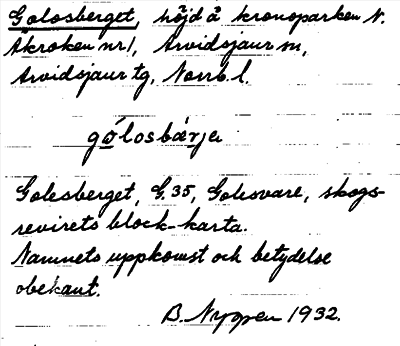 Golosberget, höjd å kronoparken N.
Åkroken nr 1, Arvidsjaur sn,
Arvidsjaur tg, Norrb. l.
gólosbærje
Golesberget, G. 35, Golesvare, skogs-
revirets block-karta.
Namnets uppkomst och betydelse
obekant.
B. Nyppen 1932.